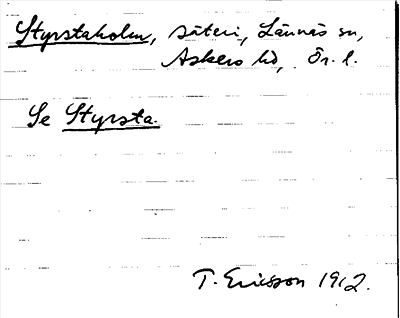 Styrstaholm, säteri, Lännäs sn,
Askers hd, Ör. l.
Se Styrsta.
T. Ericsson 1912.